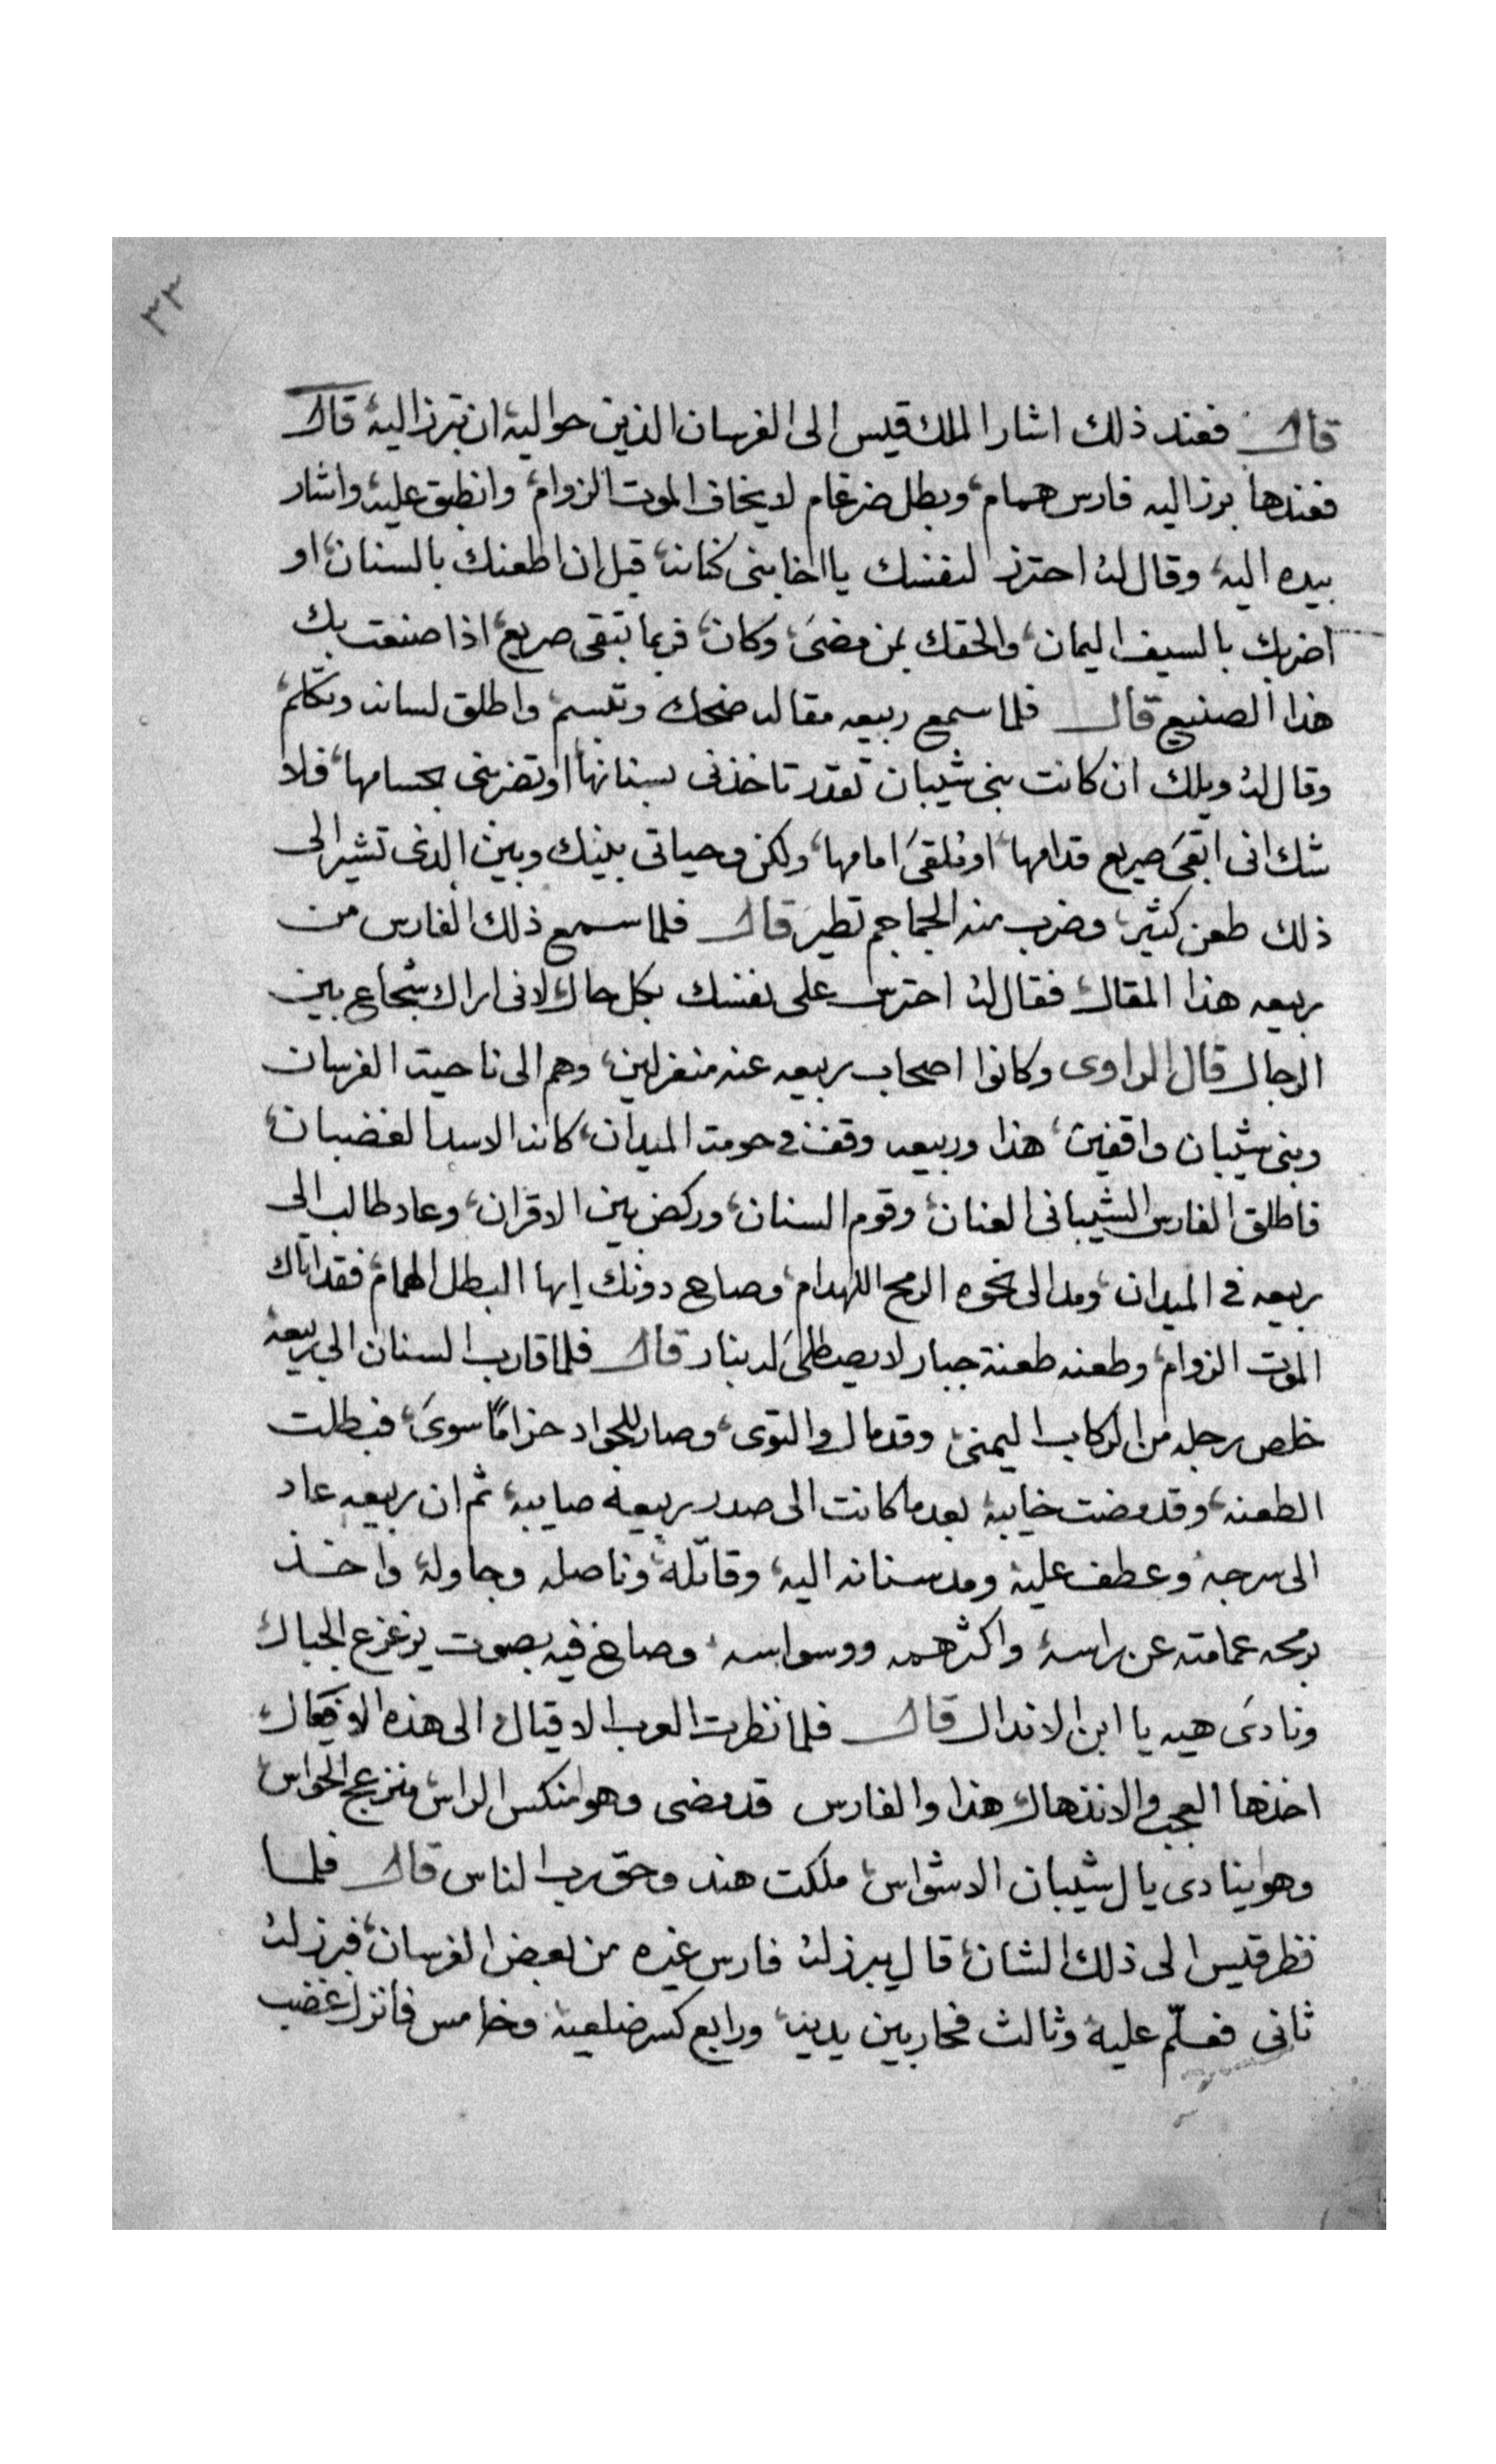 ٣٣
قال فعند ذلك اشار الملك قيس الى الفرسان الذين حواليه ان تبرز اليه قال
فعندها برز اليه فارس همام، وبطل ضرغام لا يخاف الموت الزوام، وانطبق عليه، واشار
بيده اليه، وقال له احترز لنفسك يا اخا بنى كنانه، قبل ان اطعنك بالسنان، او
اضربك بالسيف اليمان، والحقك بمن مضىَ، وكان، فربما تبقى صريع، اذا صنعت بك
هذا الصنيع قال فلما سمع ربيعه مقاله ضحك وتبسم، واطلق لسانه وتكلم،
وقال له ويلك ان كانت بنى شيبان تقدر تاخذنى بسنانها، او تضربنى بحسامها، فلا
شك انى ابقىَ صريع قدامها، او ملقىَ امامها، ولكن وحياتى بينك وبين الذى تشير الى
ذلك طعن كثير، وضرب منه الجماجم تطير قال فلما سمع ذلك الفارس من
ربيعه هذا المقال، فقال له احترس على نفسك بكل حال، لانى اراك شجاع بين
الرجال قال الراوى وكانوا اصحاب ربيعه عنه منعزلين، وهم الى ناحية الفرسان
وبنى شيبان واقفين، هذا وربيعه وقف فى حومة الميدان، كانه الاسد الغضبان،
فاطلق الفارس الشيبانى العنان، وقوم السنان، وركض بين الاقران، وعاد طالب الى
ربيعه فى الميدان، ومد الى نحوه الرمح اللهدام، وصاح دونك ايها البطل الهمام، فقد اتاك
الموت الزوام، وطعنه طعنة جبار لا يصطلىَ له بنار قال فلما قارب السنان الى ربيعه
خلص رجله من الركاب اليمنى، وقد مال والتوى، وصار للجواد حزامًا سوىَ، فبطلت
الطعنه، وقد مضت خايبه، بعد ما كانت الى صدر ربيعه صايبه، ثم ان ربيعه عاد
الى سرجه، وعطف عليه ومد سنانه اليه، وقاتله، وناصله وجاوله، واخذ
برمحه عمامته عن راسه، واكثر همه ووسواسه، وصاح فيه بصوت يزعزع الجبال،
ونادىَ هيه يا ابن الاندال قال فلما نظرت العرب الاقيال، الى هذه الافعال،
اخذها العجب والانذهال، هذا والفارس قد مضى وهو منكس الراس، منزعج الحواس،
وهو ينادى يال شيبان الاشواس، ملكت هند وحق رب الناس قال فلما
نظر قيس الى ذلك الشان، قال يبرز له فارس غيره من بعض الفرسان، فبرز له
ثانى فعلّم عليه وثالث فحار بين يديه، ورابع كسر ضلعيه، وخامس فانزل غضب